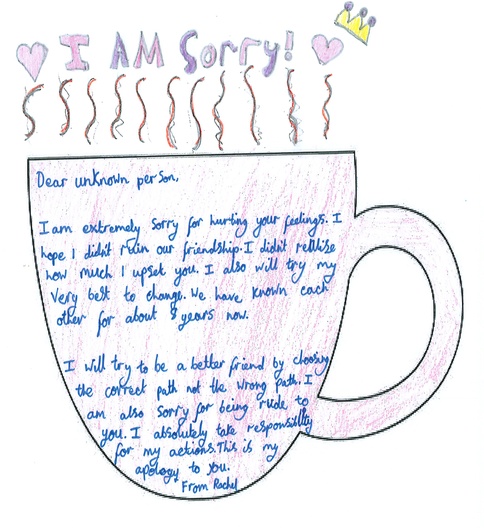 I AM Sorry!
Dear unknown person,
I am extremely sorry for hurting your feelings. I
hope I didn't ruin our friendship. I didn't realise
how much I upset you. I also will try my
very best to change. We have known each
other for about years now.
I will try to be a better friend by choosing
the correct path not the wrong path. I
am also sorry for being rude to
you. I absolutely take responsibility
for my actions. This is my
apology to you.
From